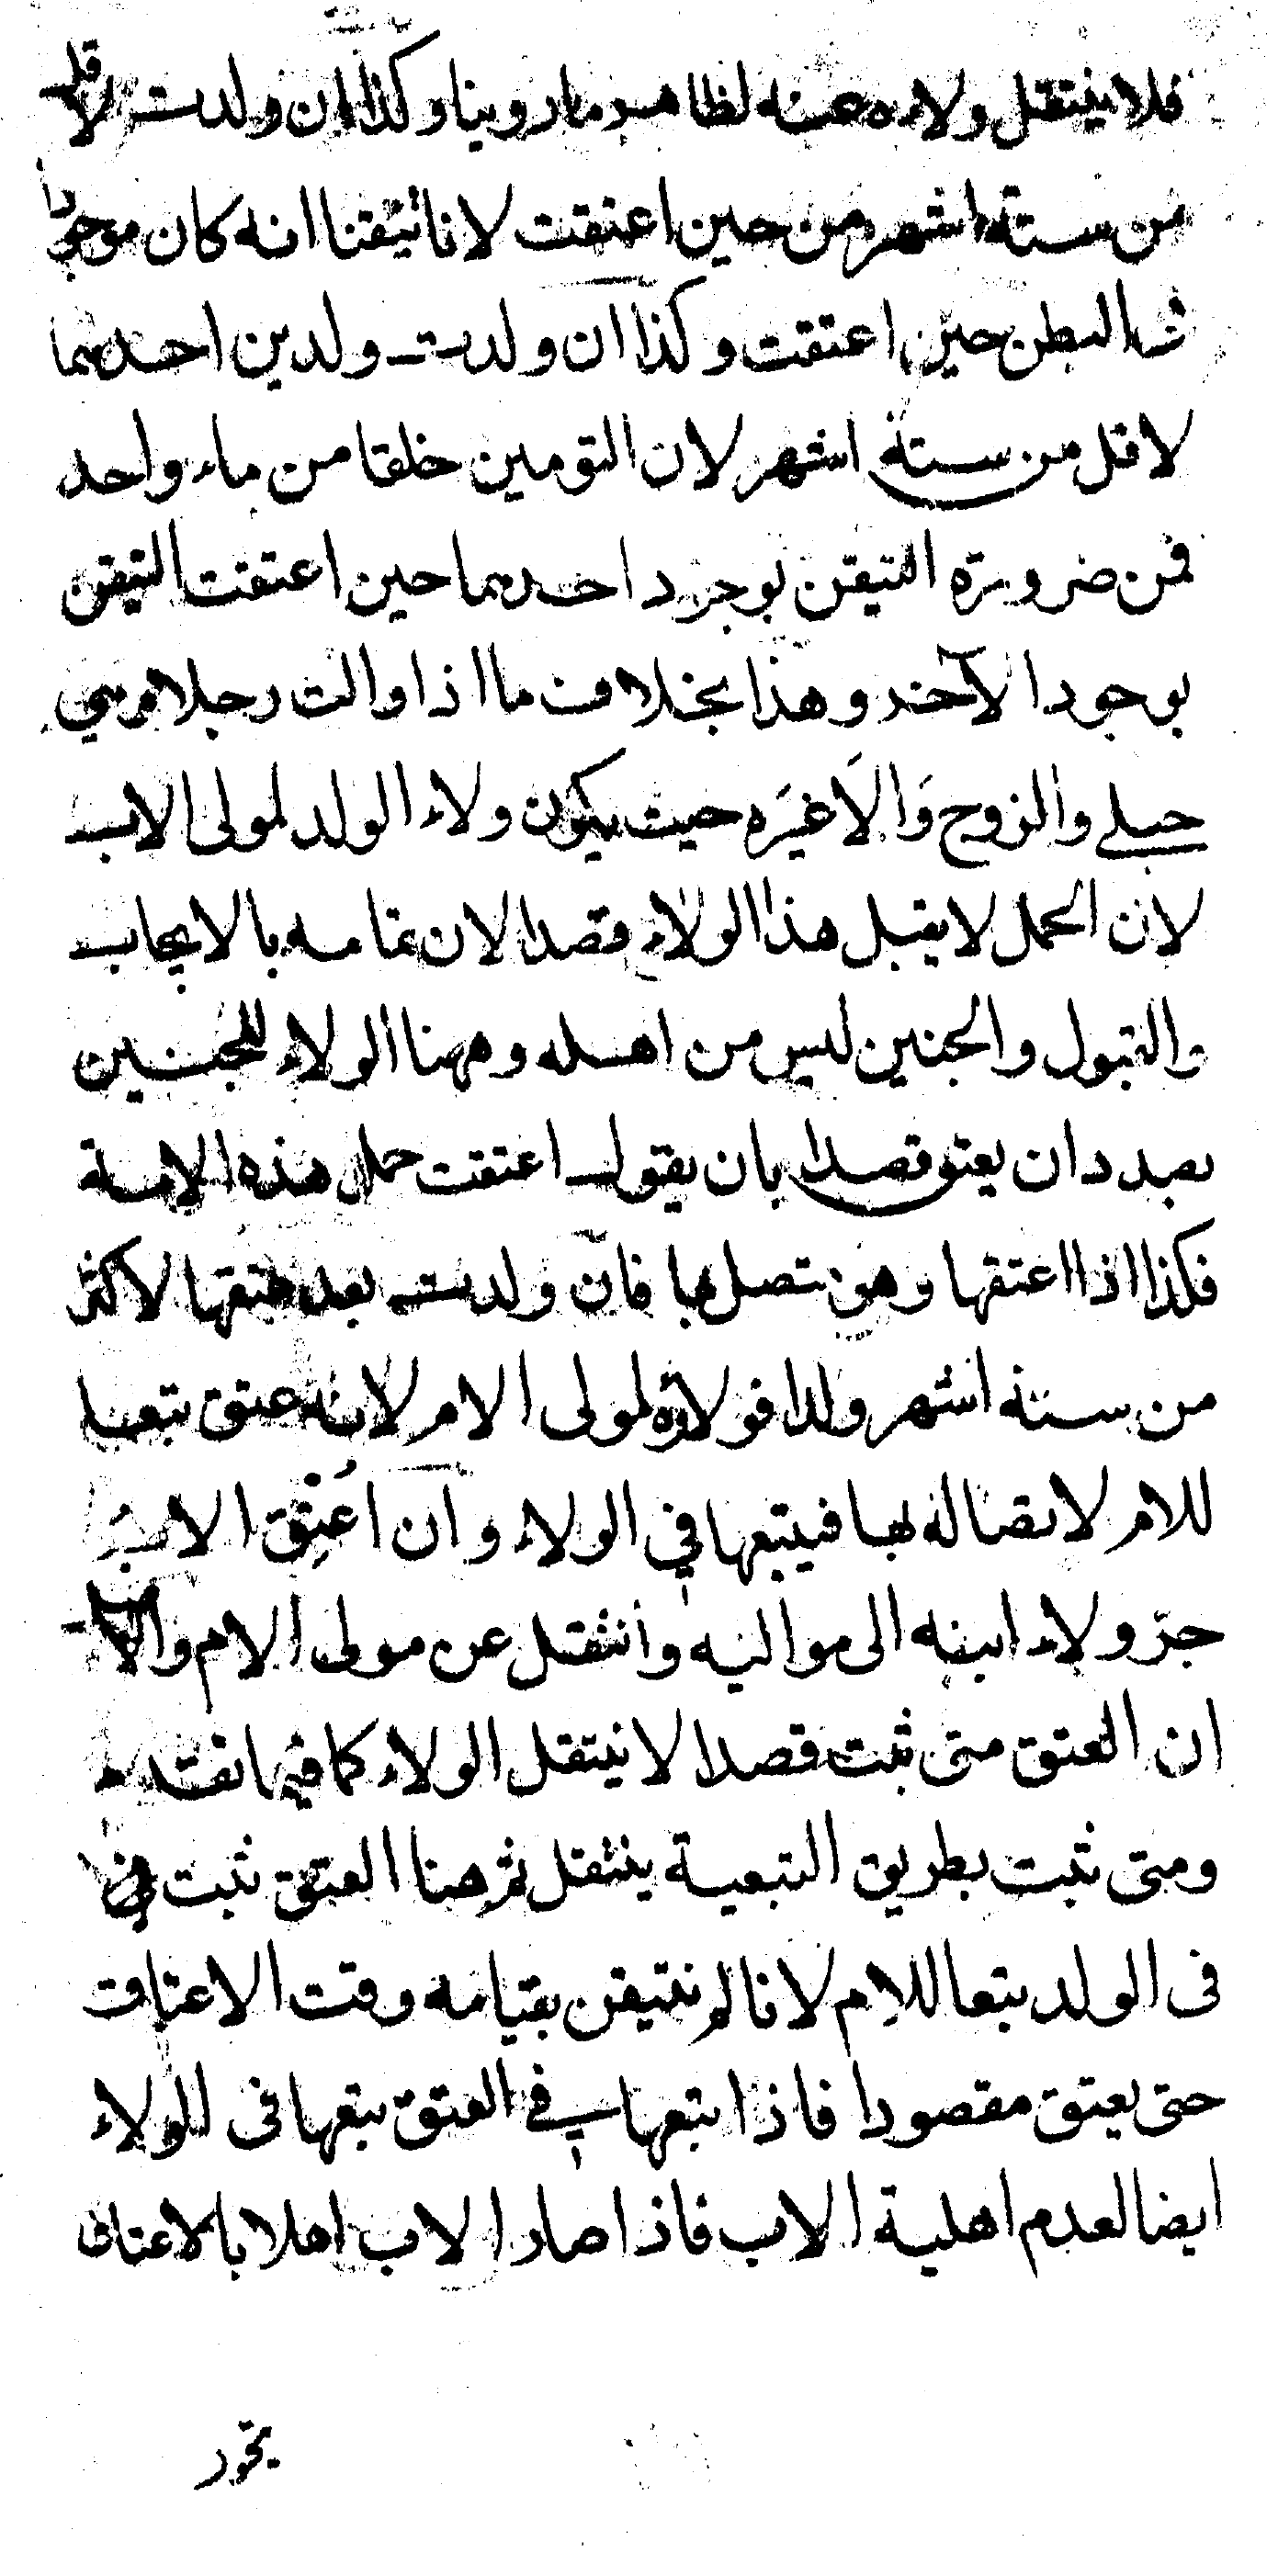 فلا ينتقل ولاءه عنه لظاهر ما روينا وكذا ان ولدت لاقل
من ستة اشهر من حين اعتقت لانا تيقنا انه كان موجودا
في البطن حين اعتقت وكذا ان ولدت ولدين احدهما
لاقل من ستة اشهر لان التومين خلقا من ماء واحد
فمن ضرورة التيقن بوجود احدهما حين اعتقت التيقن
بوجود الآخر وهذا بخلاف ما اذا والت رجلا وهي
حبلى والزوج والَا غيَره حيث يكون ولاء الولد لمولى الاب
لان الحمل لا يقبل هذا الولاء قصدا لان تمامه بالايجاب
والقبول والجنين ليس من اهله وههنا الولاء للجنين
بصدد ان يعتق قصدا بان يقول اعتقت حمل هذه الامة
فكذا اذا اعتقها وهو متصل بها فان ولدت بعد عتقها لاكثر
من ستة اشهر ولدا فولاؤه لمولى الام لانه عتق تبعا
للام لاتصاله بها فيتبعها في الولاء وان اُعتِق الاب
جرّ ولاء ابنه الى مواليه وانتقل عن مولى الام والاصل
ان العتق متى ثبت قصدا لا ينتقل الولاء كما فيما تقدم
ومتى ثبت بطريق التبعية ينتقل ثم هنا العتق ثبت
فى الولد تبعا للام لانا لم نتيقن بقيامه وقت الاعتاق
حتى يعتق مقصودا فاذا تبعها في العتق تبعها فى الولاء
ايضا لعدم اهلية الاب فاذا صار الاب اهلا بالاعتاق